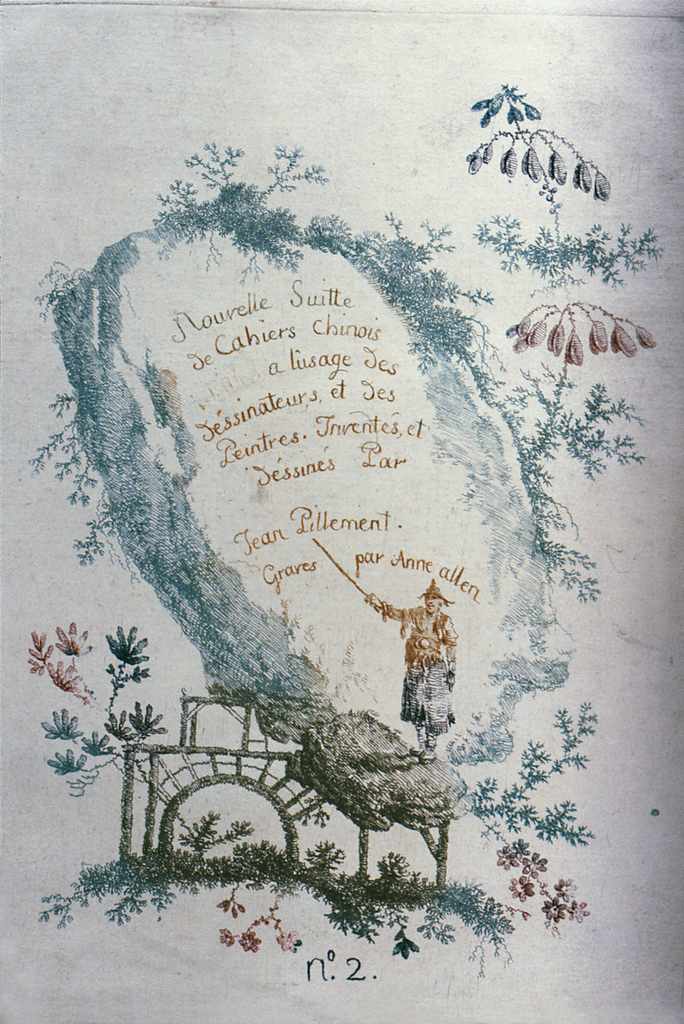 Nouvelle Suitte
de Cahiers chinois
a l'usage des
déssinateurs, et des
Peintres. Inventés, et
déssinés Par
Jean Pillement.
Graves par Anne allen
n.º 2.